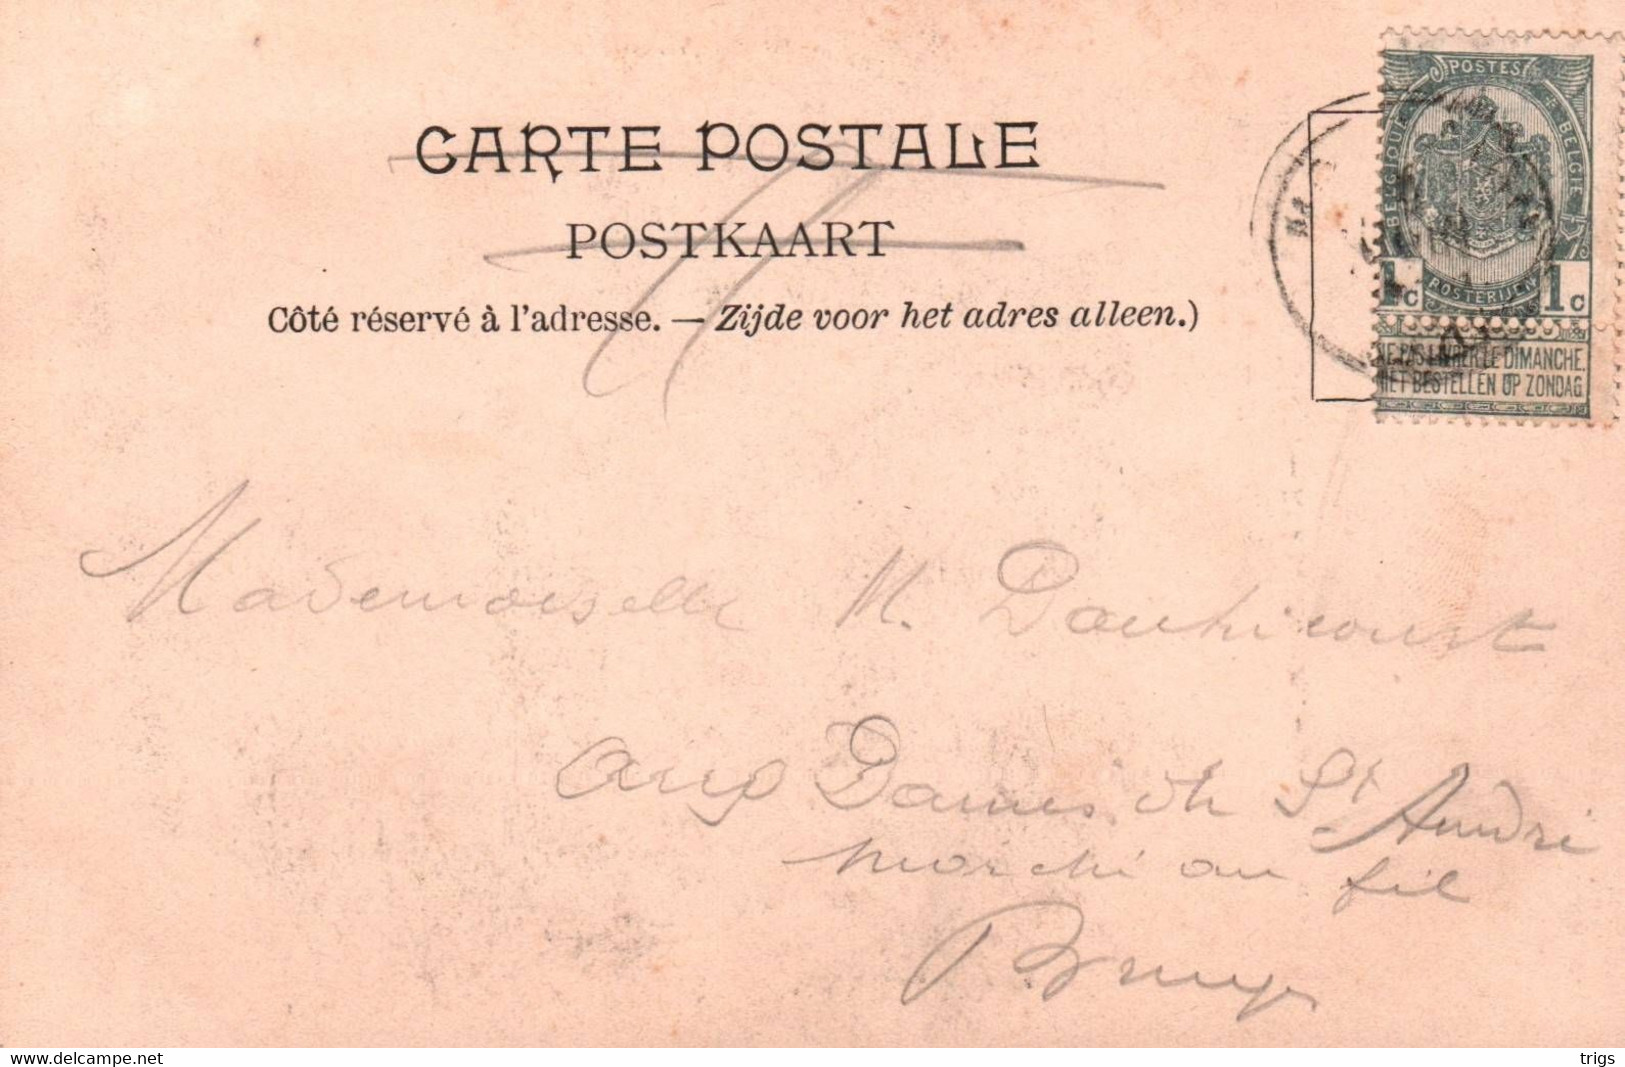 CARTE POSTALE
POSTKAART
Côté réservé à l'adresse. — Zijde voor het adres alleen.)
POSTES
BELGIQUE
BELGIE
1c POSTERIJEN 1c
NE PAS LIVRER LE DIMANCHE.
NIET BESTELLEN OP ZONDAG
Mademoiselle M. Dauhicourt
aux Dames de St. André
marché au fil
Bruges
www.delcampe.net
trigs